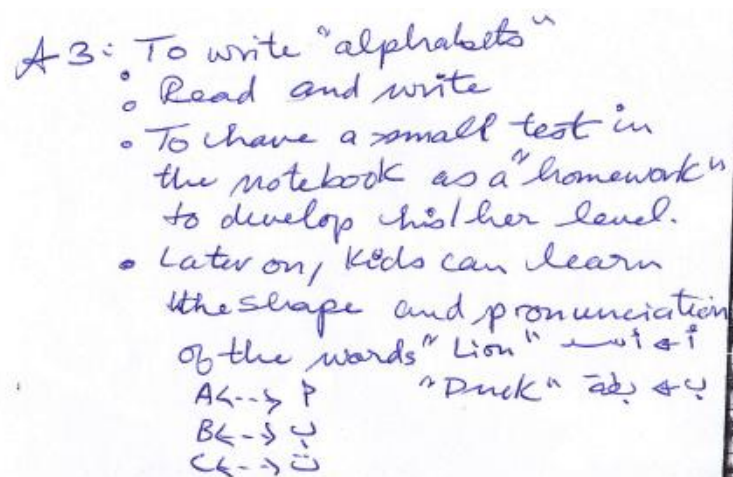 A3: To write "alphabets"
• Read and write
• To have a small test in
the notebook as a "homework"
to develop his/her level.
• Later on, kids can learn
the shape and pronunciation
of the words "Lion" أ ← أسد
"Duck" ب ← بطة
A <--> أ
B <--> ب
C <--> ت